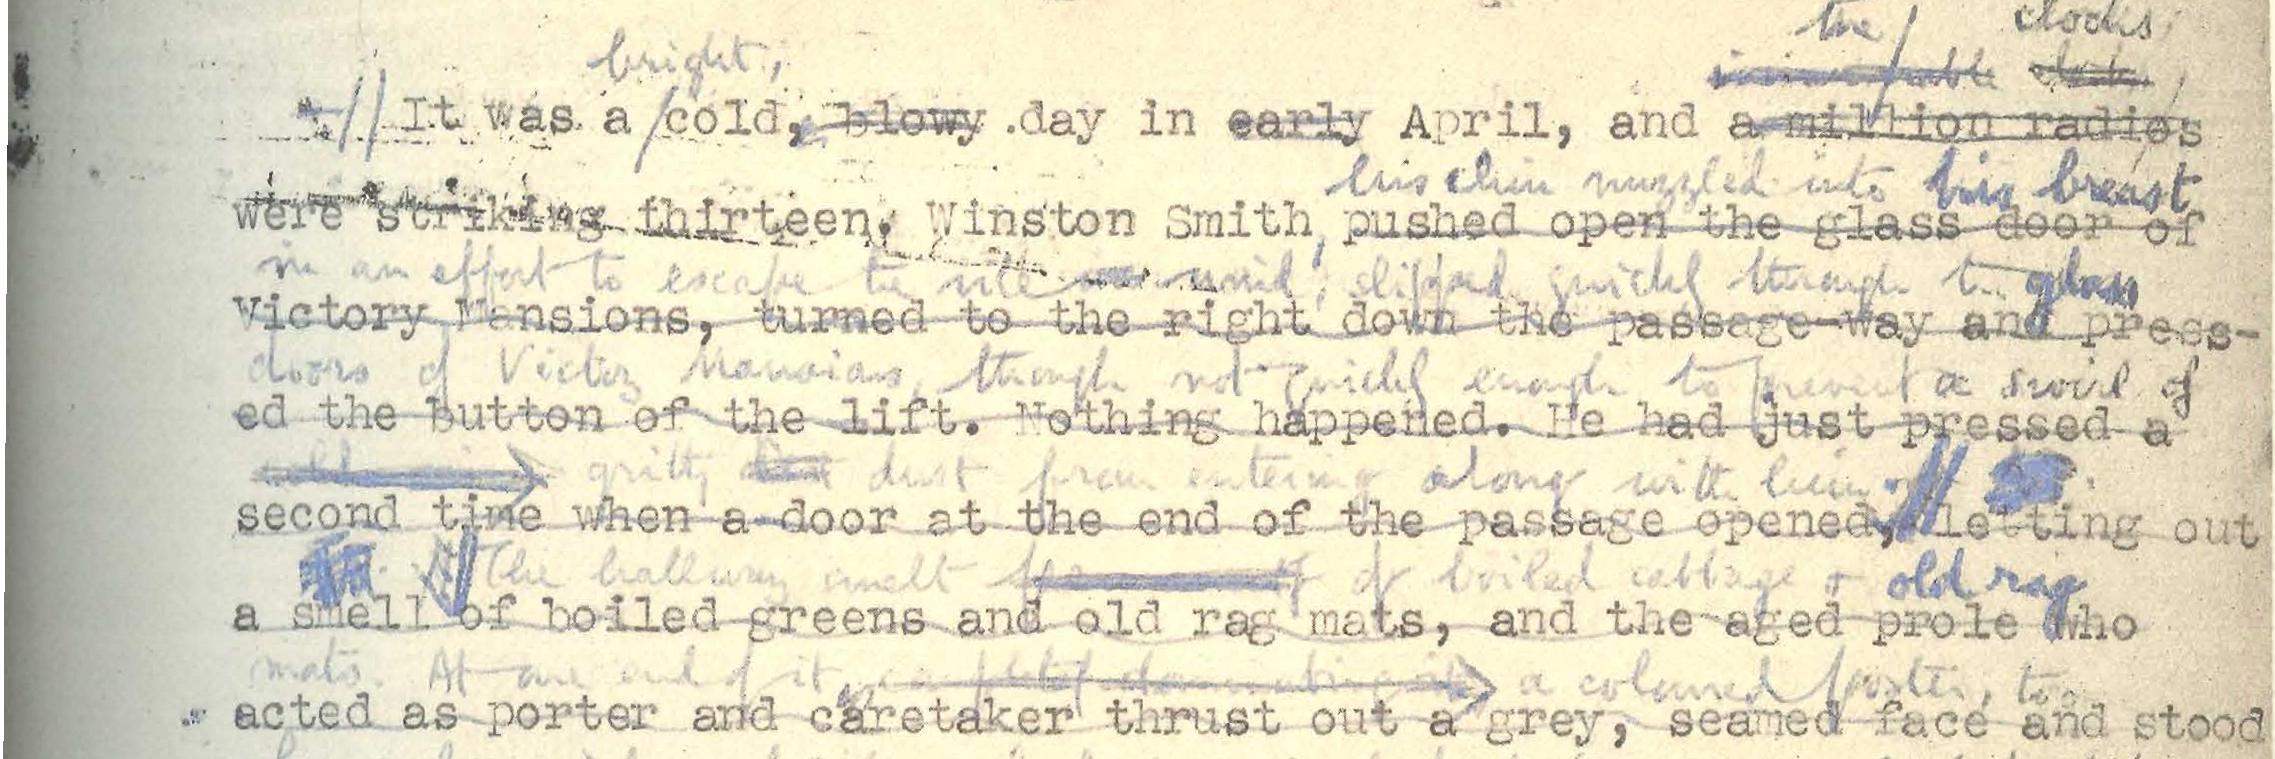 the clocks
bright,
It was a cold, blowy day in early April, and a million radios
his chin nuzzled into his breast
were striking thirteen. Winston Smith, pushed open the glass door of
in an effort to escape the vile wind, slipped quickly through the glass
Victory Mansions, turned to the right down the passage-way and press-
doors of Victory Mansions, though not quickly enough to prevent a swirl of
ed the button of the lift. Nothing happened. He had just pressed a
gritty dust from entering along with him.
second time when a door at the end of the passage opened, letting out
The hallway smelt of boiled cabbage & old rag
a smell of boiled greens and old rag mats, and the aged prole who
mats. At one end of it a coloured poster, too
acted as porter and caretaker thrust out a grey, seamed face and stood